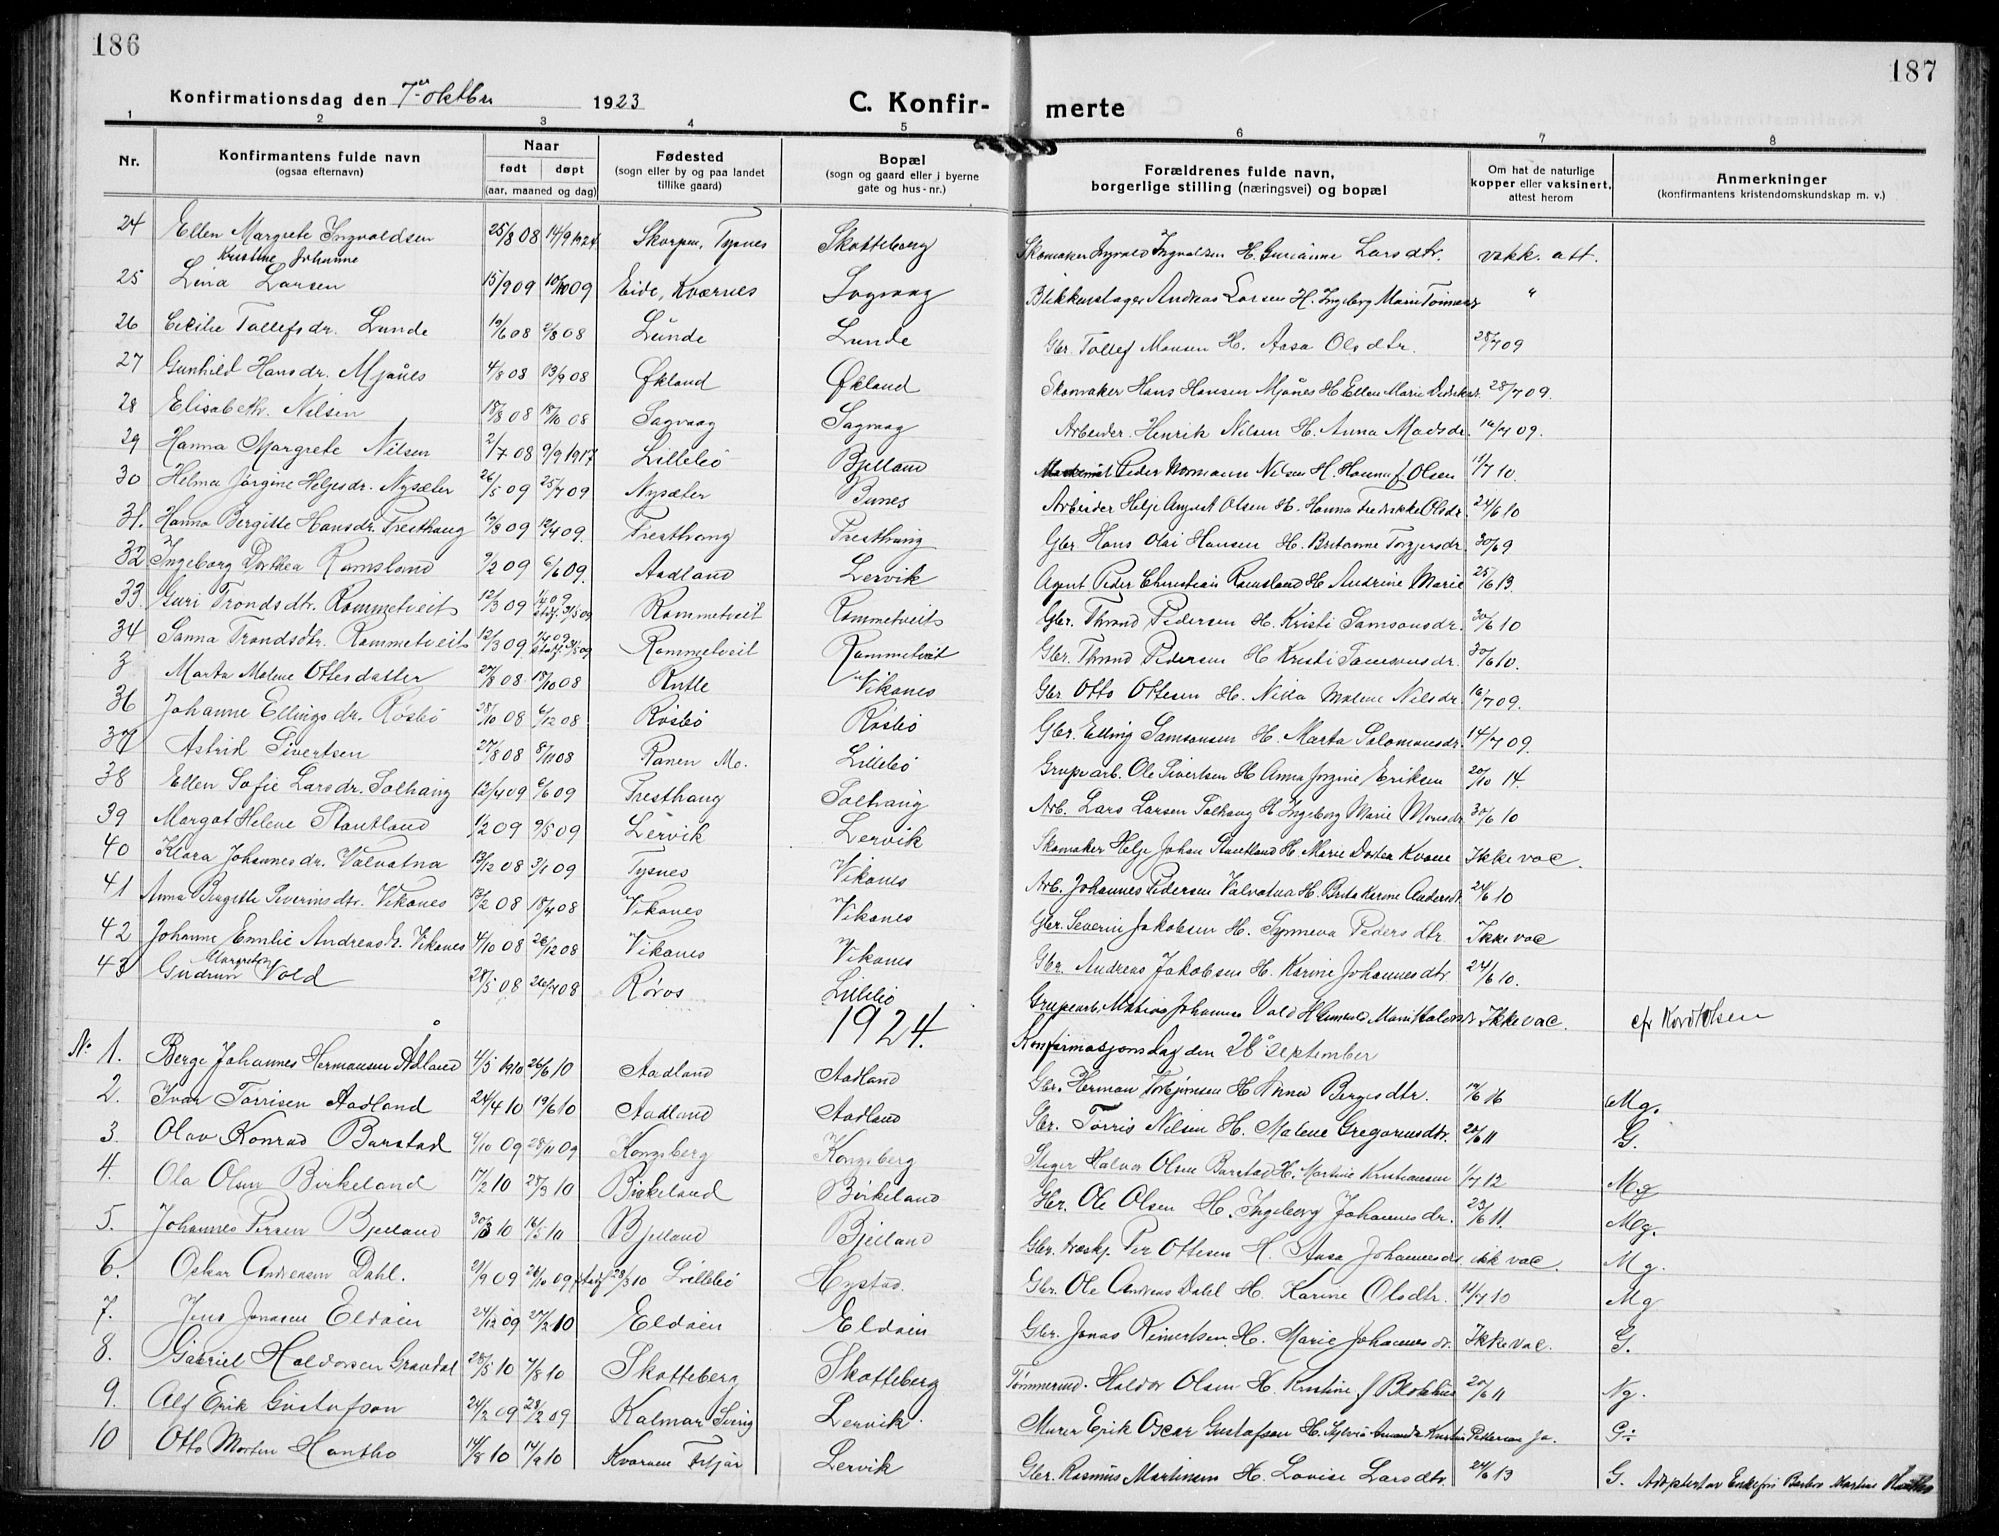 186
187
Konfirmationsdag den 7de oktbr 1923
C. Konfirmerte
1 2 3 4 5 6 7 8
Nr.
Konfirmantens fulde navn (ogsaa efternavn)
Naar født døpt (aar, maaned og dag)
Fødested (sogn eller by og paa landet tillike gaard)
Bopæl (sogn og gaard eller i byerne gate og hus-nr.)
Forældrenes fulde navn, borgerlige stilling (næringsvei) og bopæl
Om hat de naturlige kopper eller vaksinert, attest herom
Anmerkninger (konfirmantens kristendomskundskap m. v.)
24 Ellen Margrete Ingvaldsen 25/8 08 14/9 1924 Skorpen, Tysnes Skotteberg Skomaker Ingvald Ingvaldsen H. Gurianne Larsdtr. vakk. att.
25 Lina Kristine Johanne Larsen 15/9 09 10/10 09 Eide, Kværnes Sagvaag Blikkenslager Andreas Larsen H. Ingeborg Marie "
26 Cecilie Tollefsdr. Lunde 19/6 08 2/8 08 Lunde Lunde Gbr. Tollef Monsen H. Aasa Olsdtr. 28/7 09
27 Gunhild Hansdr. Mjånes 4/8 08 13/9 08 Økland Økland Skomaker Hans Hansen Mjånes H. Ellen Marie 28/7 09.
28 Elisabeth Nilsen 18/8 08 18/10 08 Sagvaag Sagvaag Arbeider Henrik Nilsen H. Anna Madsdr. 16/7 09.
29 Hanna Margrete Nilsen 2/7 08 9/9 1917 Lillebø Bjelland Peder Normann Nilsen H. Hanna f. Olsen 11/7 10.
30 Helma Jørgine Heljesdr. Nysæter 26/5 09 25/7 09 Nysæter Bunes Arbeider Helje August Olsen H. Hanna Fredrikke Olsdr. 24/6 10
31. Hanna Bergitte Hansdr. Presthaug 19/3 09 12/4 09. Presthaug Presthaug Gbr. Hans Olai Hansen H. Britanne Torgersdr. 30/6 9
32 Ingeborg Dorthea Ramsland 9/2 09 6/6 09. Aadland Lervik Agent Peder Christian Ramsland H. Andrine Marie 25/6 13.
33. Guri Trondsdtr. Rommetveit 12/3 09 1/4 09 stadf. 31/5 09 Rommetveit Rommetveit Gbr. Thrond Pedersen H. Kristi Samsonsdr. 30/6 10
34 Sanna Trondsdtr. Rommetveit 12/3 09 1/4 09 stadf. 31/5 09 Rommetveit Rommetveit Gbr. Thrond Pedersen H. Kristi Samsonsdr. 30/6 10.
3 Marta Malene Ottesdatter 27/8 08 18/10 08 Rutle Vikanes Gbr Otto Ottesen H. Nilla Malene Nilsdr. 16/7 09.
36 Johanne Ellingsdr. Røsbø 28/10 08 6/12 08 Røsbø Røsbø Gbr. Elling Samsonsen H. Marta Salomonsdr. 14/7 09.
37 Astrid Sivertsen 27/8 08 8/11 08 Ranen Mo. Lillebø Grubearb. Ole Sivertsen H. Anna Jørgine Eriksen 20/10 14.
38 Ellen Sofie Larsdr. Solhaug 12/4 09 6/6 09 Presthaug Solhaug Arb. Lars Larsen Solhaug H. Ingeborg Marie Monsdr. 30/6 10
39 Margot Helene Stautland 1/2 09 9/5 09 Lervik Lervik Skomaker Helje Johan Stautland H. Marie Dortea Kvame Ikke vac.
40 Klara Johannesdr. Valvatna 13/12 08 3/1 09 Tysnes Vikanes Arb. Johannes Pedersen Valvatna H. Brita Karine Andersdr 24/6 10
41 Anna Birgitte Severinsdtr. Vikanes 13/2 08 18/4 08 Vikanes Vikanes Gbr. Severin Jakobsen H. Synneva Pedersdtr. Ikke vac
42 Johanne Emilie Andreasdr. Vikanes 4/10 08 26/12 08 Vikanes Vikanes Gbr. Andreas Jakobsen H. Karine Johannesdtr 24/6 10.
43 Gudrun Margrethe Vold 28/5 08 26/7 08 Røros Lillebø Grubearb. Matias Johannes Vold H. Gunhild Marie Ikke vac. efr Kordt Olsen
1924. Konfirmasjonsdag den 28. september
No. 1. Berge Johannes Hermansen Ådland 4/5 1910 26/6 10 Aadland Aadland Gbr. Herman Torbjørnsen H. Anna Bergesdtr. 19/6 16 Mg.
2. Ivar Torrisen Aadland 24/4 10 19/6 10 Aadland Aadland Gbr. Torris Nilsen H. Malene Gregoriusdtr. 20/6 11 G.
3. Olav Konrad Barstad 4/10 09 28/11 09 Kongsberg Kongsberg Stiger Halvor Olsen Barstad H. Martine Kristiansen 1/7 12 Mg
4. Ola Olsen Birkeland 17/2 10 28/3 10 Birkeland Birkeland Gbr. Ole Olsen H. Ingeborg Johannesdr. 23/6 11. Mg.
5. Johannes Persen Bjelland 30/3 10 16/5 10 Bjelland Bjelland Gbr. træskj. Per Ottesen H. Aasa Johannesdr ikk vac. Mg.
6. Oskar Andreasen Dahl. 21/9 09 26/10 09 stadf 28/3 10 Lillebø Hystad. Gbr. Ole Andreas Dahl H. Karine Olsdtr. 11/7 10 Mg
7. Jens Jonasen Eldøen 24/12 09 27/2 10 Eldøen Eldøen Gbr. Jonas Reinertsen H. Marie Johannesdr. Ikke vac. G.
8. Gabriel Haldorsen Gravdal 28/5 10 7/8 10 Skotteberg Skotteberg Tømmermd. Haldor Olsen H. Kristine f Blokhus 20/6 11 Ng.
9. Alf Erik Gustafson 24/2 09 28/2 09 Kalmar Sverig Lervik. Murer Erik Oscar Gustafson H. Sylvia Amanda Kristin Petterson Ja. G÷
10 Otto Morten Hantho 14/8 10 14/9 10 Kvarven Fitjar Lervik Gbr. Rasmus Martinsen H. Lovise Larsdtr. 24/6 13 G. Adoptert av Enkefru Barbro Martine Hantho